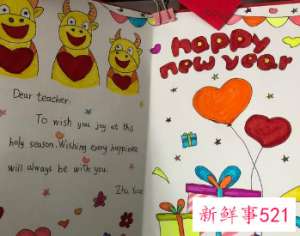 Dear teacher:
To wish you joy at this
holy season. Wishing every happiness
will always be with you.
Happy
new year
新鲜事521